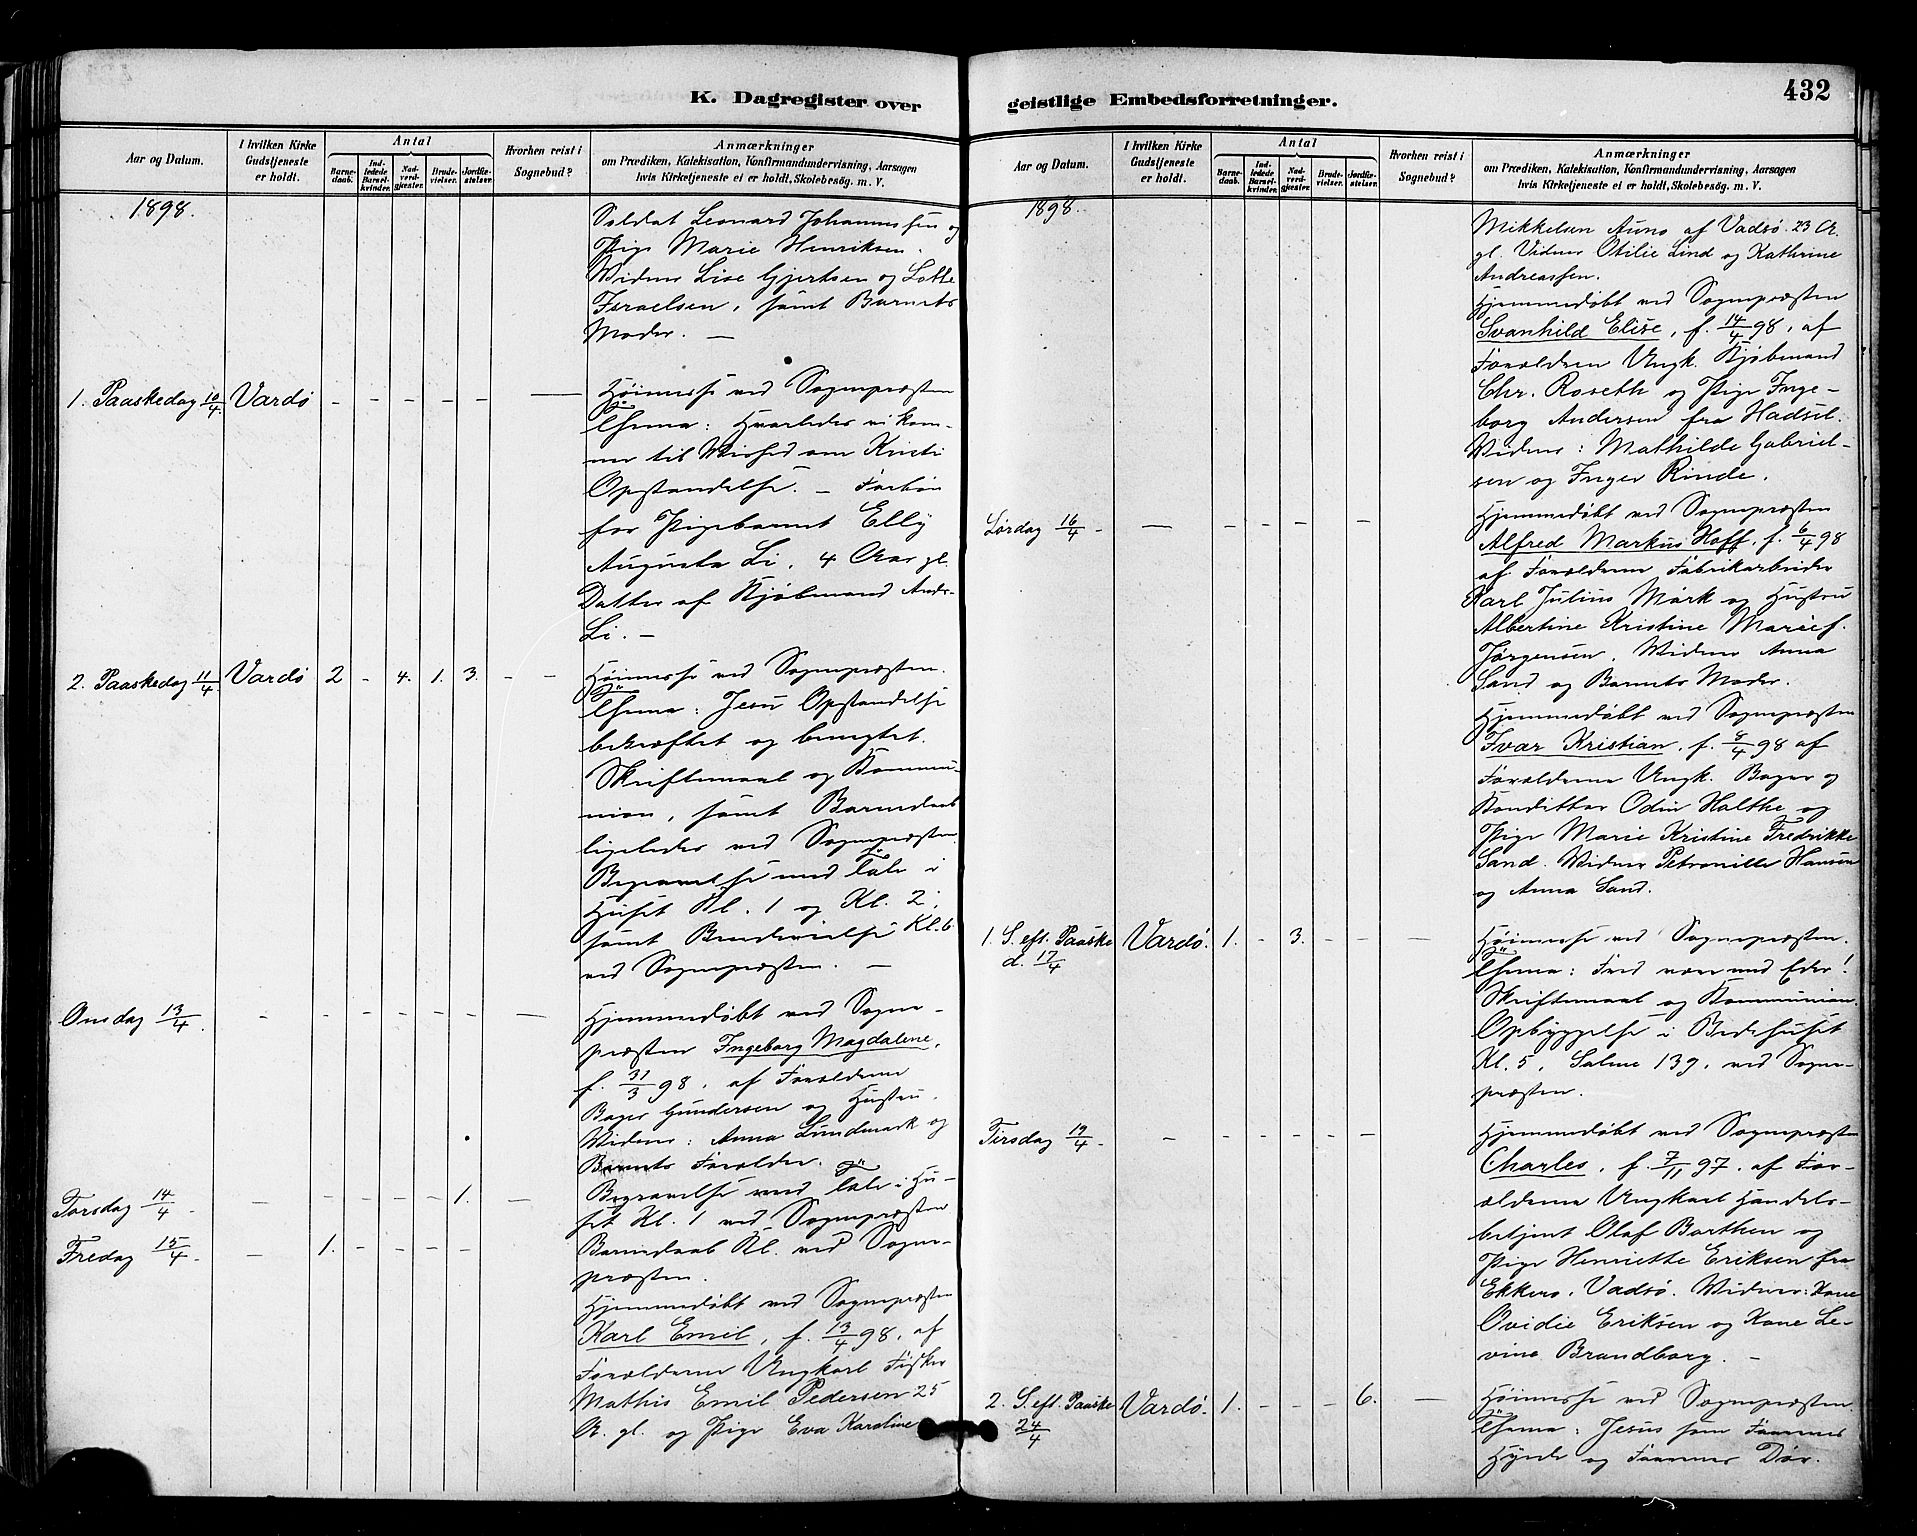 432
K. Dagregister over
geistlige Embedsforretninger.
Aar og Datum.
I hvilken Kirke
Gudstjeneste
er holdt.
Antal
Barne-
daab.
Ind-
ledede
Barsel-
kvinder.
Nad-
verd-
gjester.
Brude-
vielser.
Jordfæ-
stelser.
Hvorhen reist i
Sognebud?
Anmærkninger
om Prædiken, Katekisation, Konfirmandundervisning, Aarsagen
hvis Kirketjeneste ei er holdt, Skolebesög. m. V.
1898.
Soldat Leonard Johannssen og
Pige Marie Henriksen.
Widner Lise Gjertsen og Lotte
Israelsen, samt Barnets
Moder. —
1. Paaskedag 10/4 Vardö – – – – – — Höimesse ved Sognepræsten
Thema: Hvorledes vi kom-
mer til Vished om Kristi
Opstandelse. – Forbön
for Pigebarnet Elly
Augusta Li, 4 Aar gl.
Datter af Kjöbmand Andr.
Li. –
2. Paaskedag 11/4 Vardö 2 – 4. 1. 3. – – Höimesse ved Sognepræsten.
Thema: Jesu Opstandelse
bekræftet og benegtet.
Skriftemaal og Kommu-
nion, samt Barnedaab
ligeledes ved Sognepræsten.
Begravelse med Tale i
Huset Kl. 1 og Kl. 2,
samt Brudevielse Kl. 6
ved Sognepræsten. –
Onsdag 13/4. – – – – – – — Hjemmedöbt ved Sogne-
præsten Ingeborg Magdalene,
f. 31/3 98, af Forældrene
Bager Gundersen og Hustru.
Widner: Anna Lundmark og
Barnets Forældre.
Torsdag 14/4 – – – – – 1. — Begravelse med Tale i Hu-
set Kl. 1 ved Sognepræsten
Fredag 15/4 – 1. – – – – Barnedaab Kl. ved Sogne-
præsten.
Hjemmedöbt ved Sognepræsten
Karl Emil, f. 13/4 98, af
Forældrene Ungkarl Fisker
Mathis Emil Pedersen 25
A. gl. og Pige Eva Karoline
Aar og Datum.
I hvilken Kirke
Gudstjeneste
er holdt.
Antal
Barne-
daab.
Ind-
ledede
Barsel-
kvinder.
Nad-
verd-
gjester.
Brude-
vielser.
Jordfæ-
stelser.
Hvorhen reist i
Sognebud?
Anmærkninger
om Prædiken, Katekisation, Konfirmandundervisning, Aarsagen
hvis Kirketjeneste ei er holdt, Skolebesög. m. V.
1898.
Mikkelsen Auno af Vadsö. 23 A.
gl. Vidner Otilie Lind og Kathrine
Andreassen.
Hjemmedöbt ved Sognepræsten
Svanhild Elise, f. 14/4 98, af
Forældrene Ungk. Kjöbmand
Chr. Roseth og Pige Inge-
borg Andersen fra Hadsel.
Widner: Mathilde Gabriel-
sen og Inger Rinde.
Lördag 16/4 – — – – – – – Hjemmedöbt ved Sognepræsten
Alfred Markus Hoff, f. 6/4 98
af Forældrene Fabrikarbeider
Karl Julius Mörk og Hustru
Albertine Kristine Marie f.
Jörgensen. Widner Anna
Sand og Barnets Moder.
Hjemmedöbt ved Sognepræsten
Ivar Kristian, f. 8/4 98 af
Forældrene Ungk. Bager og
Konditter Odin Holthe og
Pige Marie Kristine Fredrikke
Sand. Widner Petronille Hansen
og Anna Sand.
1. S. eft. Paaske Vardö. 1. – 3. – – — Höimesse ved Sognepræsten.
d. 17/4
Thema: Fred være med Eder!
Skriftemaal og Kommunion.
Opbyggelse i Bedehuset
Kl. 5, Salme 139, ved Sogne-
præsten.
Tirsdag 19/4 – – – – – – – — Hjemmedöbt ved Sognepræsten
Charles, f. 7/11 97, af For-
ældrene Ungkarl Handels-
betjent Olaf Barthen og
Pige Henriette Eriksen fra
Ekkerö, Vadsö. Widner: Kone
Ovidie Eriksen og Kone Le-
vine Brandborg. –
2. S. eft. Paaske Vardö. 1. – – – 6. — Höimesse ved Sognepræsten.
24/4
Thema: Jesus som Faarenes
Hyrde og Faarenes Dör.